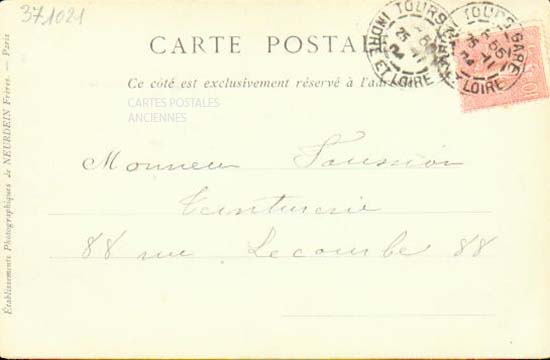 371021
CARTE POSTALE
Ce côté est exclusivement réservé à l'adresse
CARTES POSTALES
ANCIENNES
TOURS-GARE
INDRE ET LOIRE
TOURS-GARE
ET LOIRE
10
Monsieur
Teinturerie
88 rue Lecourbe 88
Établissements Photographiques de NEURDEIN Frères. — Paris